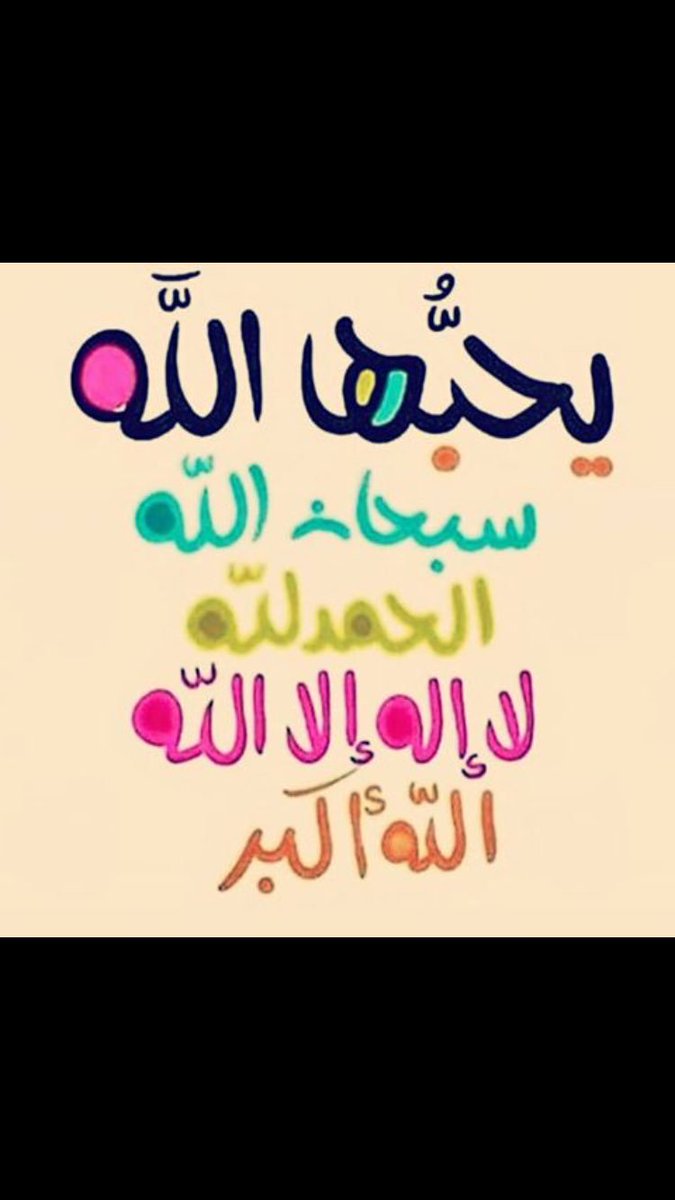 يحبُّها اللَّه
سبحان اللّه
الحمد للّه
لا إله إلا اللّه
اللّه أكبر